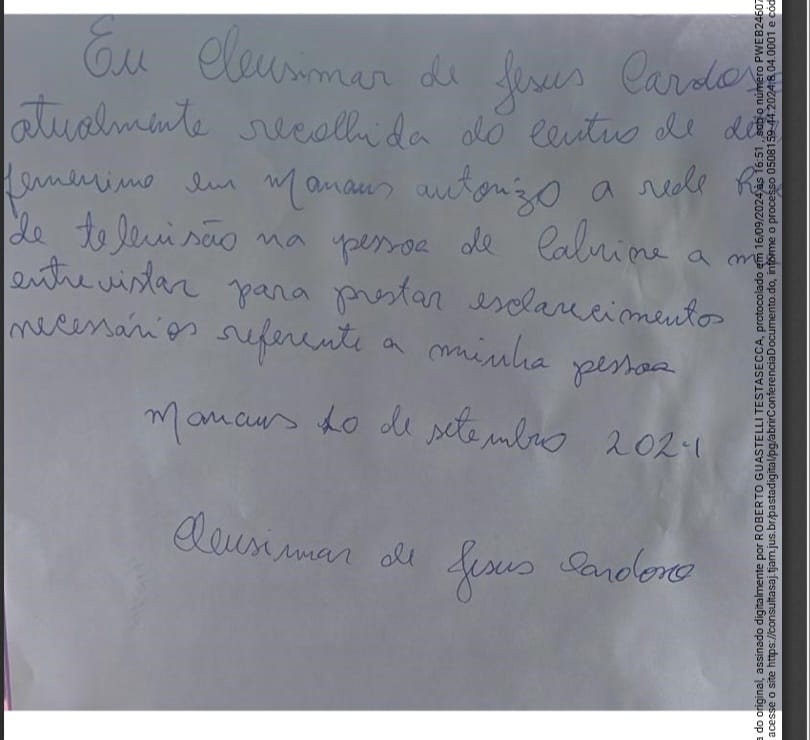 Eu Cleusimar de Jesus Cardos
atualmente recolhida do centro de de
femenino em Manaus autorizo a rede R
de televisão na pessoa de a m
entrevistar para prestar esclarecimentos
necessários referente a minha pessoa
Manaus 10 de setembro 2024
Cleusimar de Jesus Cardoso
a do original, assinado digitalmente por ROBERTO GUASTELLI TESTASECCA, protocolado em 16/09/2024 às 16:51 , sob o número PWEB24607
acesse o site https://consultasaj.tjam.jus.br/pastadigital/pg/abrirConferenciaDocumento.do, informe o processo 0508159-44.2024.8.04.0001 e cód